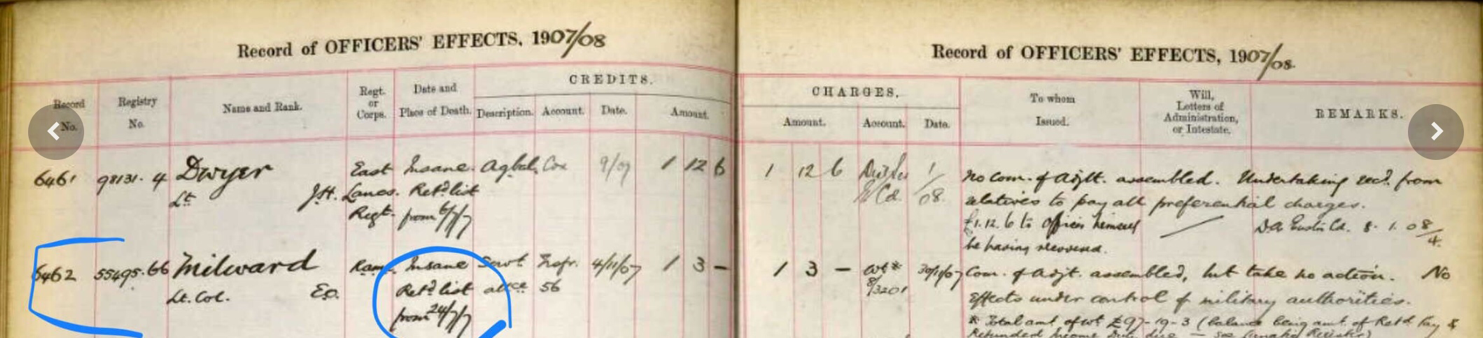 Record of OFFICERS' EFFECTS, 1907/08
Record No.
Registry No.
Name and Rank.
Regt. or Corps.
Date and Place of Death.
CREDITS.
Description.
Account.
Date.
Amount.
6461
98131.4
Dwyer
Lt
J.H.
East
Lancs.
Regt.
Insane
Retd list
from 6/7/7
Agbal
Cox
9/07
1 12 6
6462
55495.66
Milward
Lt. Col.
Ramc
Insane
Retd list
from 24/7/7
Servt
allce
56
4/11/07
1 3 -
Record of OFFICERS' EFFECTS, 1907/08.
CHARGES.
Amount.
Account.
Date.
To whom Issued.
Will, Letters of Administration, or Intestate.
REMARKS.
1 12 6
1/08
No com. of adjt. assembled. Undertaking recd. from
relatives to pay all preferential charges.
£1.12.6 to officer himself
he having recovered.
8.1.08
1 3 -
8/3201
30/11/07
Com. of adjt. assembled, but take no action. No
effects under control of military authorities.
* Total amt of £97-19-3 (balance being amt of Retd Pay &
Refunded Income Duty due — see Register)